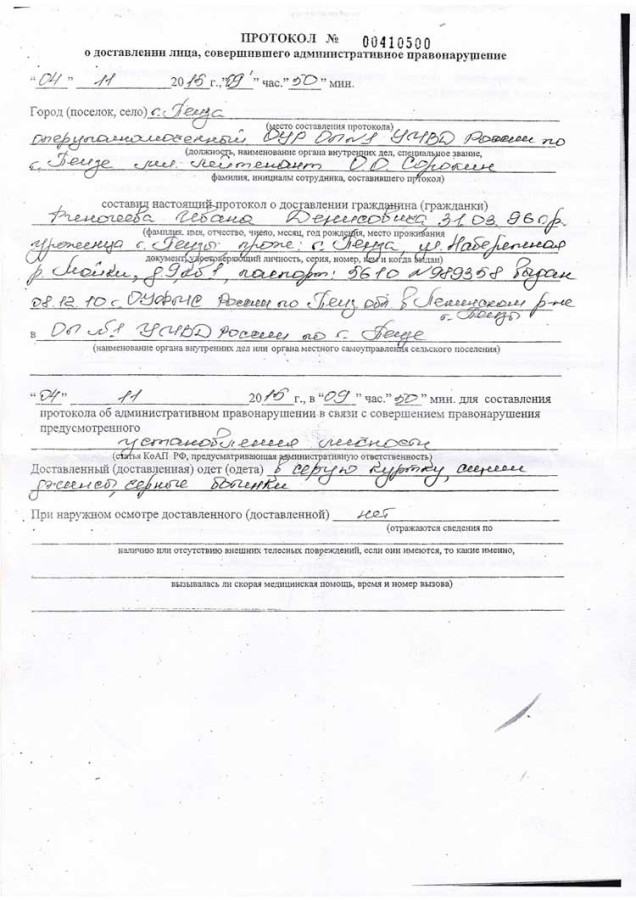 ПРОТОКОЛ № 00410500
о доставлении лица, совершившего административное правонарушение
"04" 11 2015 г., "09" час. "50" мин.
Город (поселок, село) г. Пенза
(место составления протокола)
оперуполномоченный ОУР ОП №1 УМВД России по
(должность, наименование органа внутренних дел, специальное звание,
г. Пензе мл. лейтенант О.О. Сорокин
фамилия, инициалы сотрудника, составившего пртокол)
составил настоящий протокол о доставлении гражданина (гражданки)
Ивана Денисовича 31.03.96 г.р.
(фамилия, имя, отчество, число, месяц, год рождения, место проживания
уроженца г. Пензы, прож: г. Пенза, ул. Набережная
документ, удостоверяющий личность, серия, номер, кем и когда выдан)
р. Мойки, паспорт: 5610 №989358 выдан
08.12.10 г. ОУФМС России по Пенз. обл. в Ленинском р-не
г. Пензы
в ОП №1 УМВД России по г. Пензе
(наименование органа внутренних дел или органа местного самоуправления сельского поселения)
"04" 11 2015 г., в "09" час. "50" мин. для составления
протокола об административном правонарушении в связи с совершением правонарушения
предусмотренного
установления личности
(статья КоАП РФ, предусматривающая административную ответственность)
Доставленный (доставленная) одет (одета) в серую куртку, синии
джинсы, черные ботинки
При наружном осмотре доставленного (доставленной) нет
(отражаются сведения по
наличию или отсутствию внешних телесных повреждений, если они имеются, то какие именно,
вызывалась ли скорая медицинская помощь, время и номер вызова)